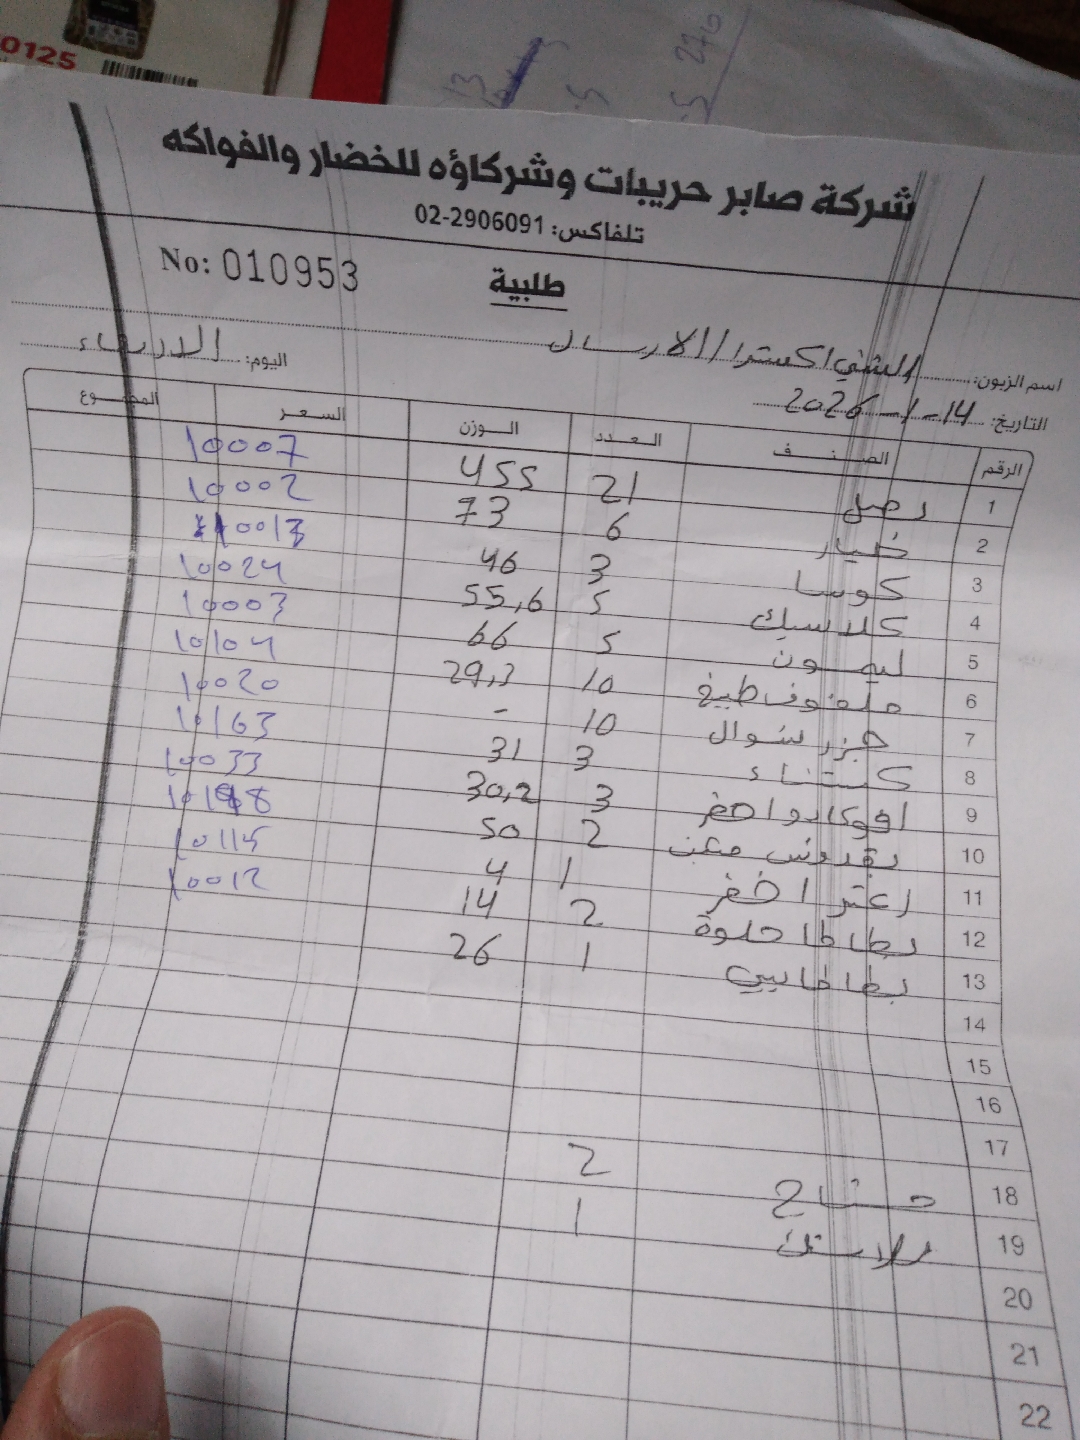 0125
شركة صابر حريبات وشركاؤه للخضار والفواكه
تلفاكس: 02-2906091
No: 010953
طلبية
اسم الزبون: الشني اكسترا / الارسال
اليوم: الاربعاء
التاريخ: 14-1-2026
الرقم الصنف العدد الوزن السعر المجموع
1 بصل 21 455 10007
2 خيار 6 73 10002
3 كوسا 3 46 10013
4 كلاسيك 5 55,6 10024
5 ليمون 5 66 10003
6 ملفوف طبيخ 10 29,3 10104
7 جزر شوال 10 - 10020
8 كستناء 3 31 10163
9 افوكادو اخضر 3 30,2 10033
10 بقدونس 2 50
11 زعتر اخضر 1 4 10115
12 بطاطا حلوة 2 14 10012
13 بطاطا بيبي 1 26
14
15
16
17
18 مشتاح 2
19 بلاستك 1
20
21
22